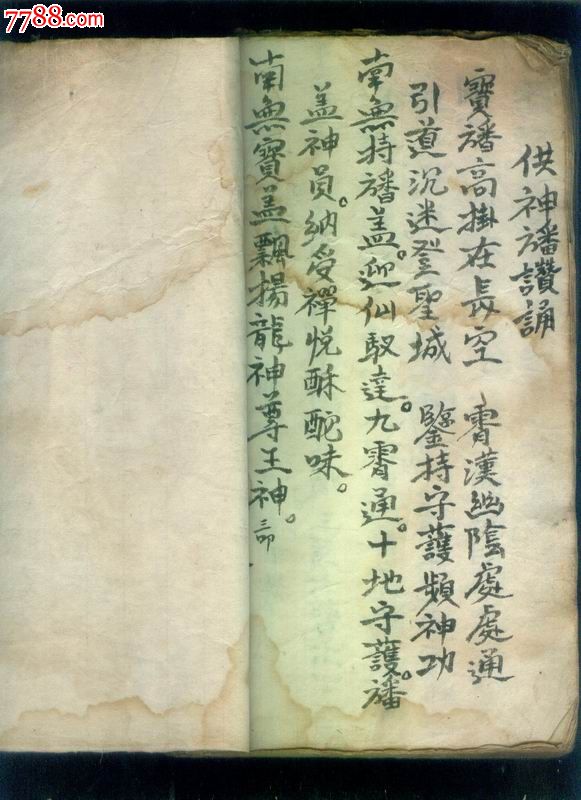 7788.com
供神旛讚誦
寶旛高掛在長空 霄漢幽陰處處通
引道沉迷登聖城 鑒持守護頻神功
南無持旛盖。迎仙馭達。九霄通。十地守護。旛
盖神員。納受禪悅酥酡味。
南無寶盖飄揚龍神尊王神。三叩